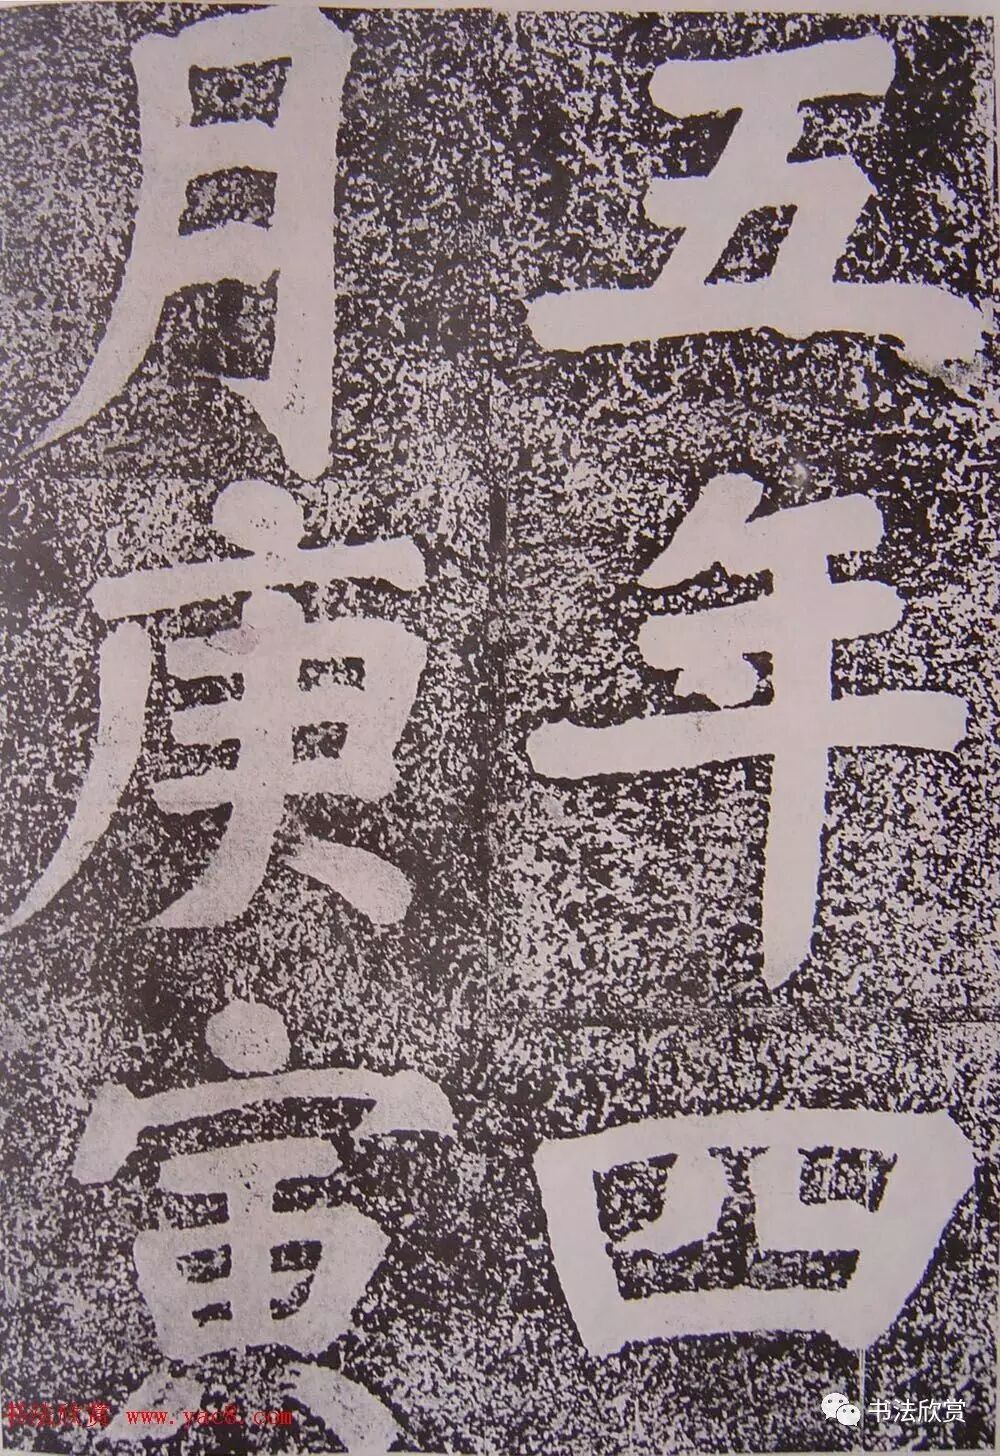 五年四
月庚寅
书法欣赏 www.yac8.com
书法欣赏